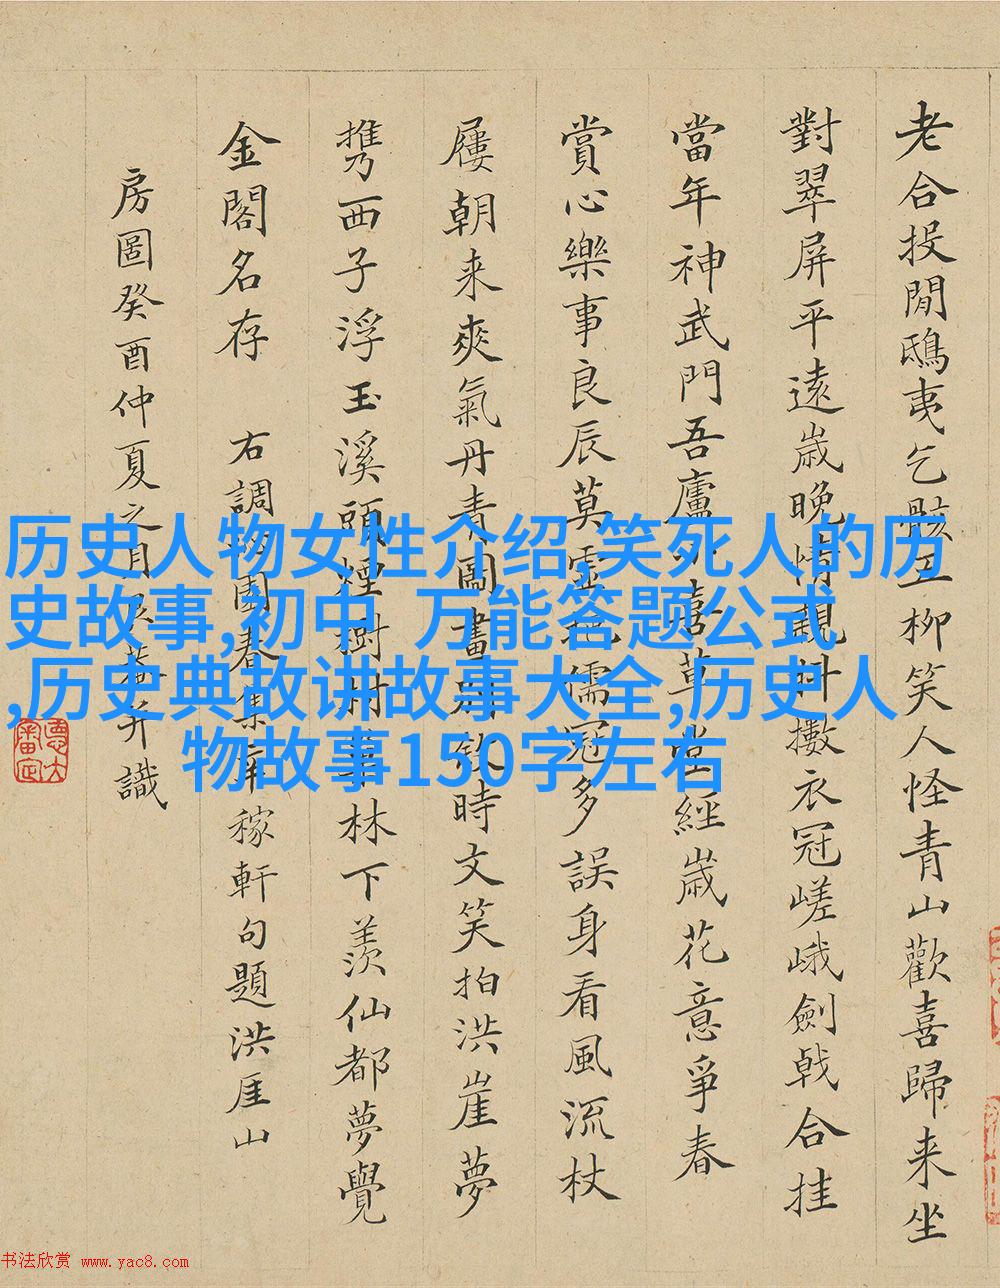 老合投閒鴟夷乞骸五柳笑人怪青山歡喜歸来坐
對翠屏平遠歲晚情親抖擻衣冠嵯峨劍戟合挂
當年神武門吾廬喜草堂經歲花意爭春
賞心樂事良辰莫靈儒冠多誤身看風流杖
屨朝来爽氣丹青圖畫時文笑拍洪崖夢
携西子浮玉溪頭煙樹村林下羨仙都夢覺
金閣名存 右調園春集辛稼軒句題洪厓山
房圖癸酉仲夏之月并識
历史人物女性介绍,笑死人的历
史故事,初中 万能答题公式
,历史典故讲故事大全,历史人
物故事150字左右
书法欣赏 www.yac8.com